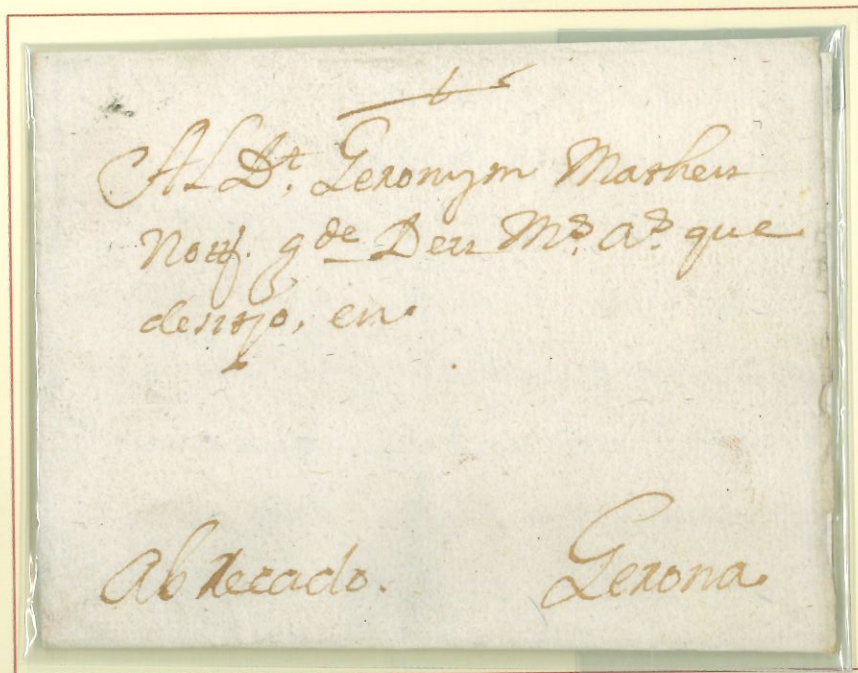 Al Dr. Geronym Matheu
Nott. g de Deu Ms. as. que
desitjo, en
Ab Recado. Gerona